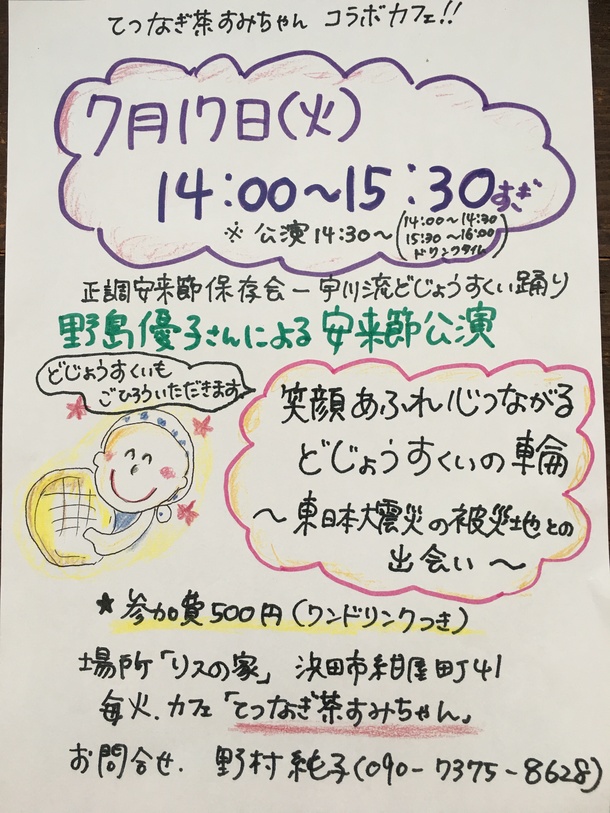 てつなぎ茶すみちゃん コラボカフェ!!
7月17日(火)
14:00〜15:30すぎ
※ 公演14:30〜(14:00〜14:30
15:30〜16:00
ドリンクタイム)
正調安来節保存会ー宇川流どじょうすくい踊り
野島優子さんによる安来節公演
どじょうすくいも
ごひろういただきます
笑顔あふれ心つながる
どじょうすくいの輪
〜東日本大震災の被災地との
出会い〜
★参加費500円(ワンドリンクつき)
場所「リスの家」 浜田市紺屋町41
毎火.カフェ「てつなぎ茶すみちゃん」
お問合せ. 野村純子(090-7375-8628)